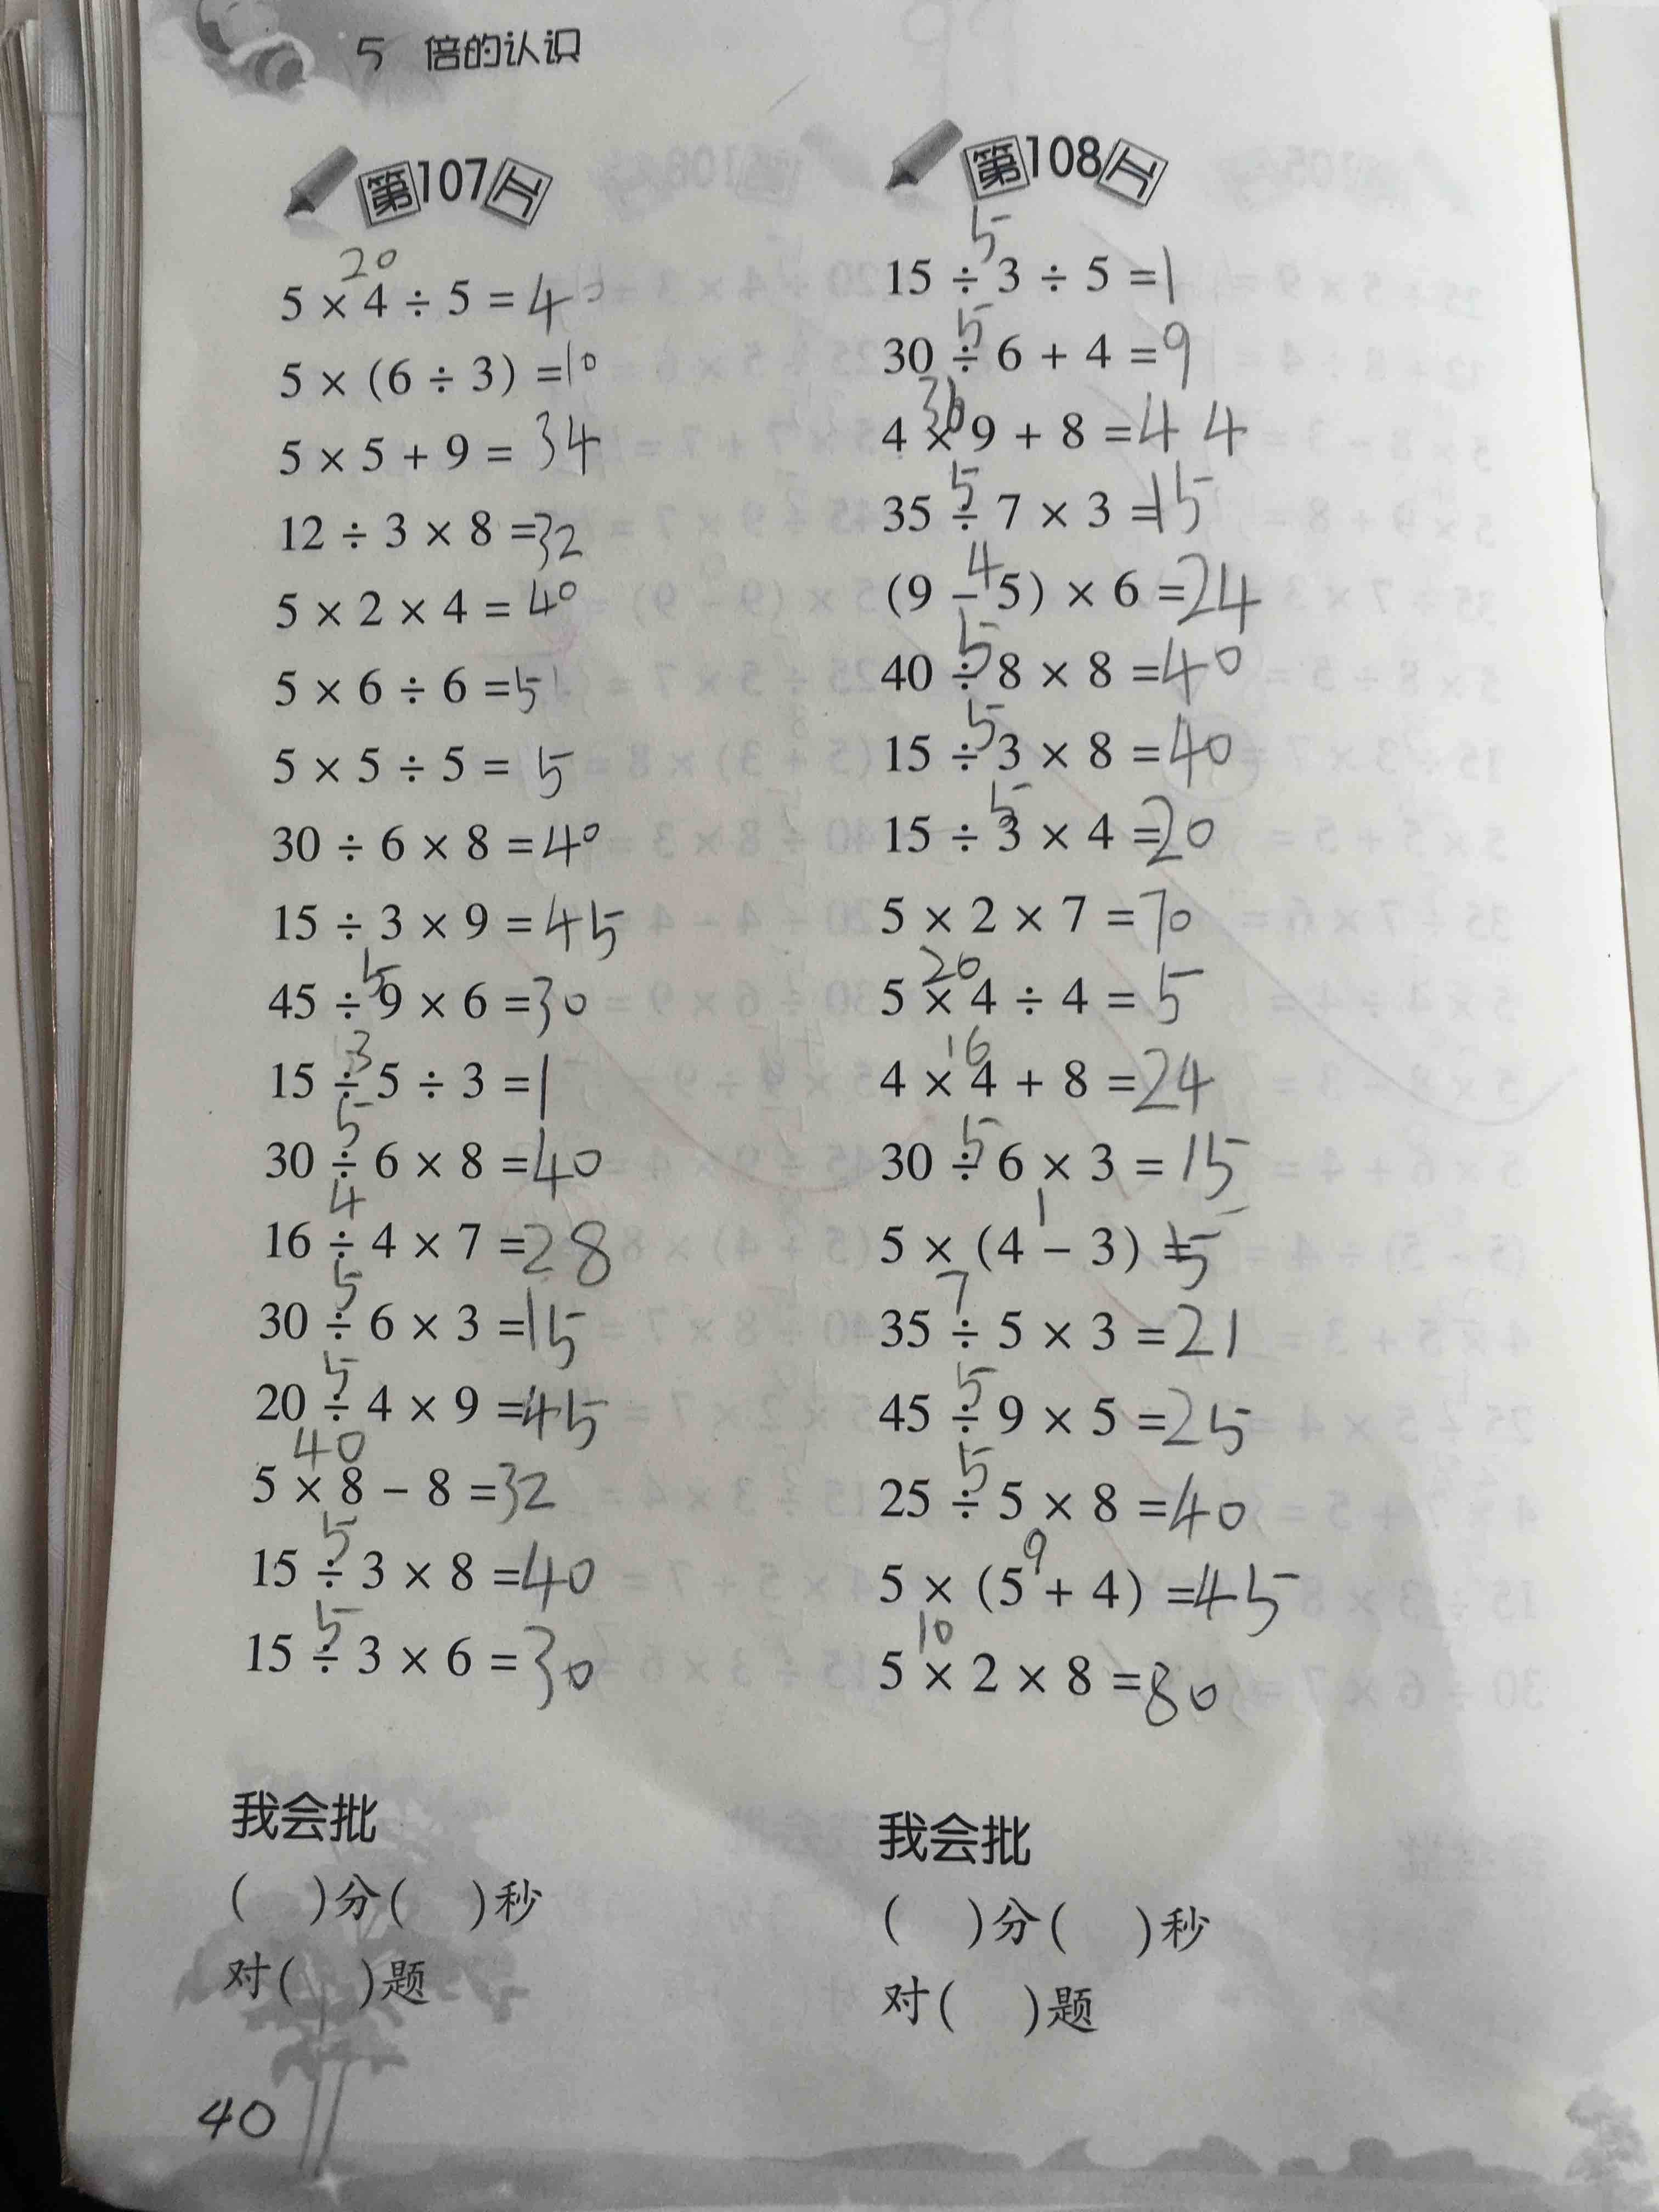 5 倍的认识
第107天
20
5 × 4 ÷ 5 = 4
5 × (6 ÷ 3) = 10
5 × 5 + 9 = 34
12 ÷ 3 × 8 = 32
5 × 2 × 4 = 40
5 × 6 ÷ 6 = 5
5 × 5 ÷ 5 = 5
30 ÷ 6 × 8 = 40
15 ÷ 3 × 9 = 45
5
45 ÷ 9 × 6 = 30
3
15 ÷ 5 ÷ 3 = 1
5
30 ÷ 6 × 8 = 40
4
16 ÷ 4 × 7 = 28
5
30 ÷ 6 × 3 = 15
5
20 ÷ 4 × 9 = 45
40
5 × 8 - 8 = 32
5
15 ÷ 3 × 8 = 40
5
15 ÷ 3 × 6 = 30
我会批
( )分( )秒
对( )题
40
第108天
5
15 ÷ 3 ÷ 5 = 1
5
30 ÷ 6 + 4 = 9
36
4 × 9 + 8 = 44
5
35 ÷ 7 × 3 = 15
4
(9 - 5) × 6 = 24
5
40 ÷ 8 × 8 = 40
5
15 ÷ 3 × 8 = 40
5
15 ÷ 3 × 4 = 20
5 × 2 × 7 = 70
20
5 × 4 ÷ 4 = 5
16
4 × 4 + 8 = 24
5
30 ÷ 6 × 3 = 15
1
5 × (4 - 3) = 5
7
35 ÷ 5 × 3 = 21
5
45 ÷ 9 × 5 = 25
5
25 ÷ 5 × 8 = 40
9
5 × (5 + 4) = 45
10
5 × 2 × 8 = 80
我会批
( )分( )秒
对( )题